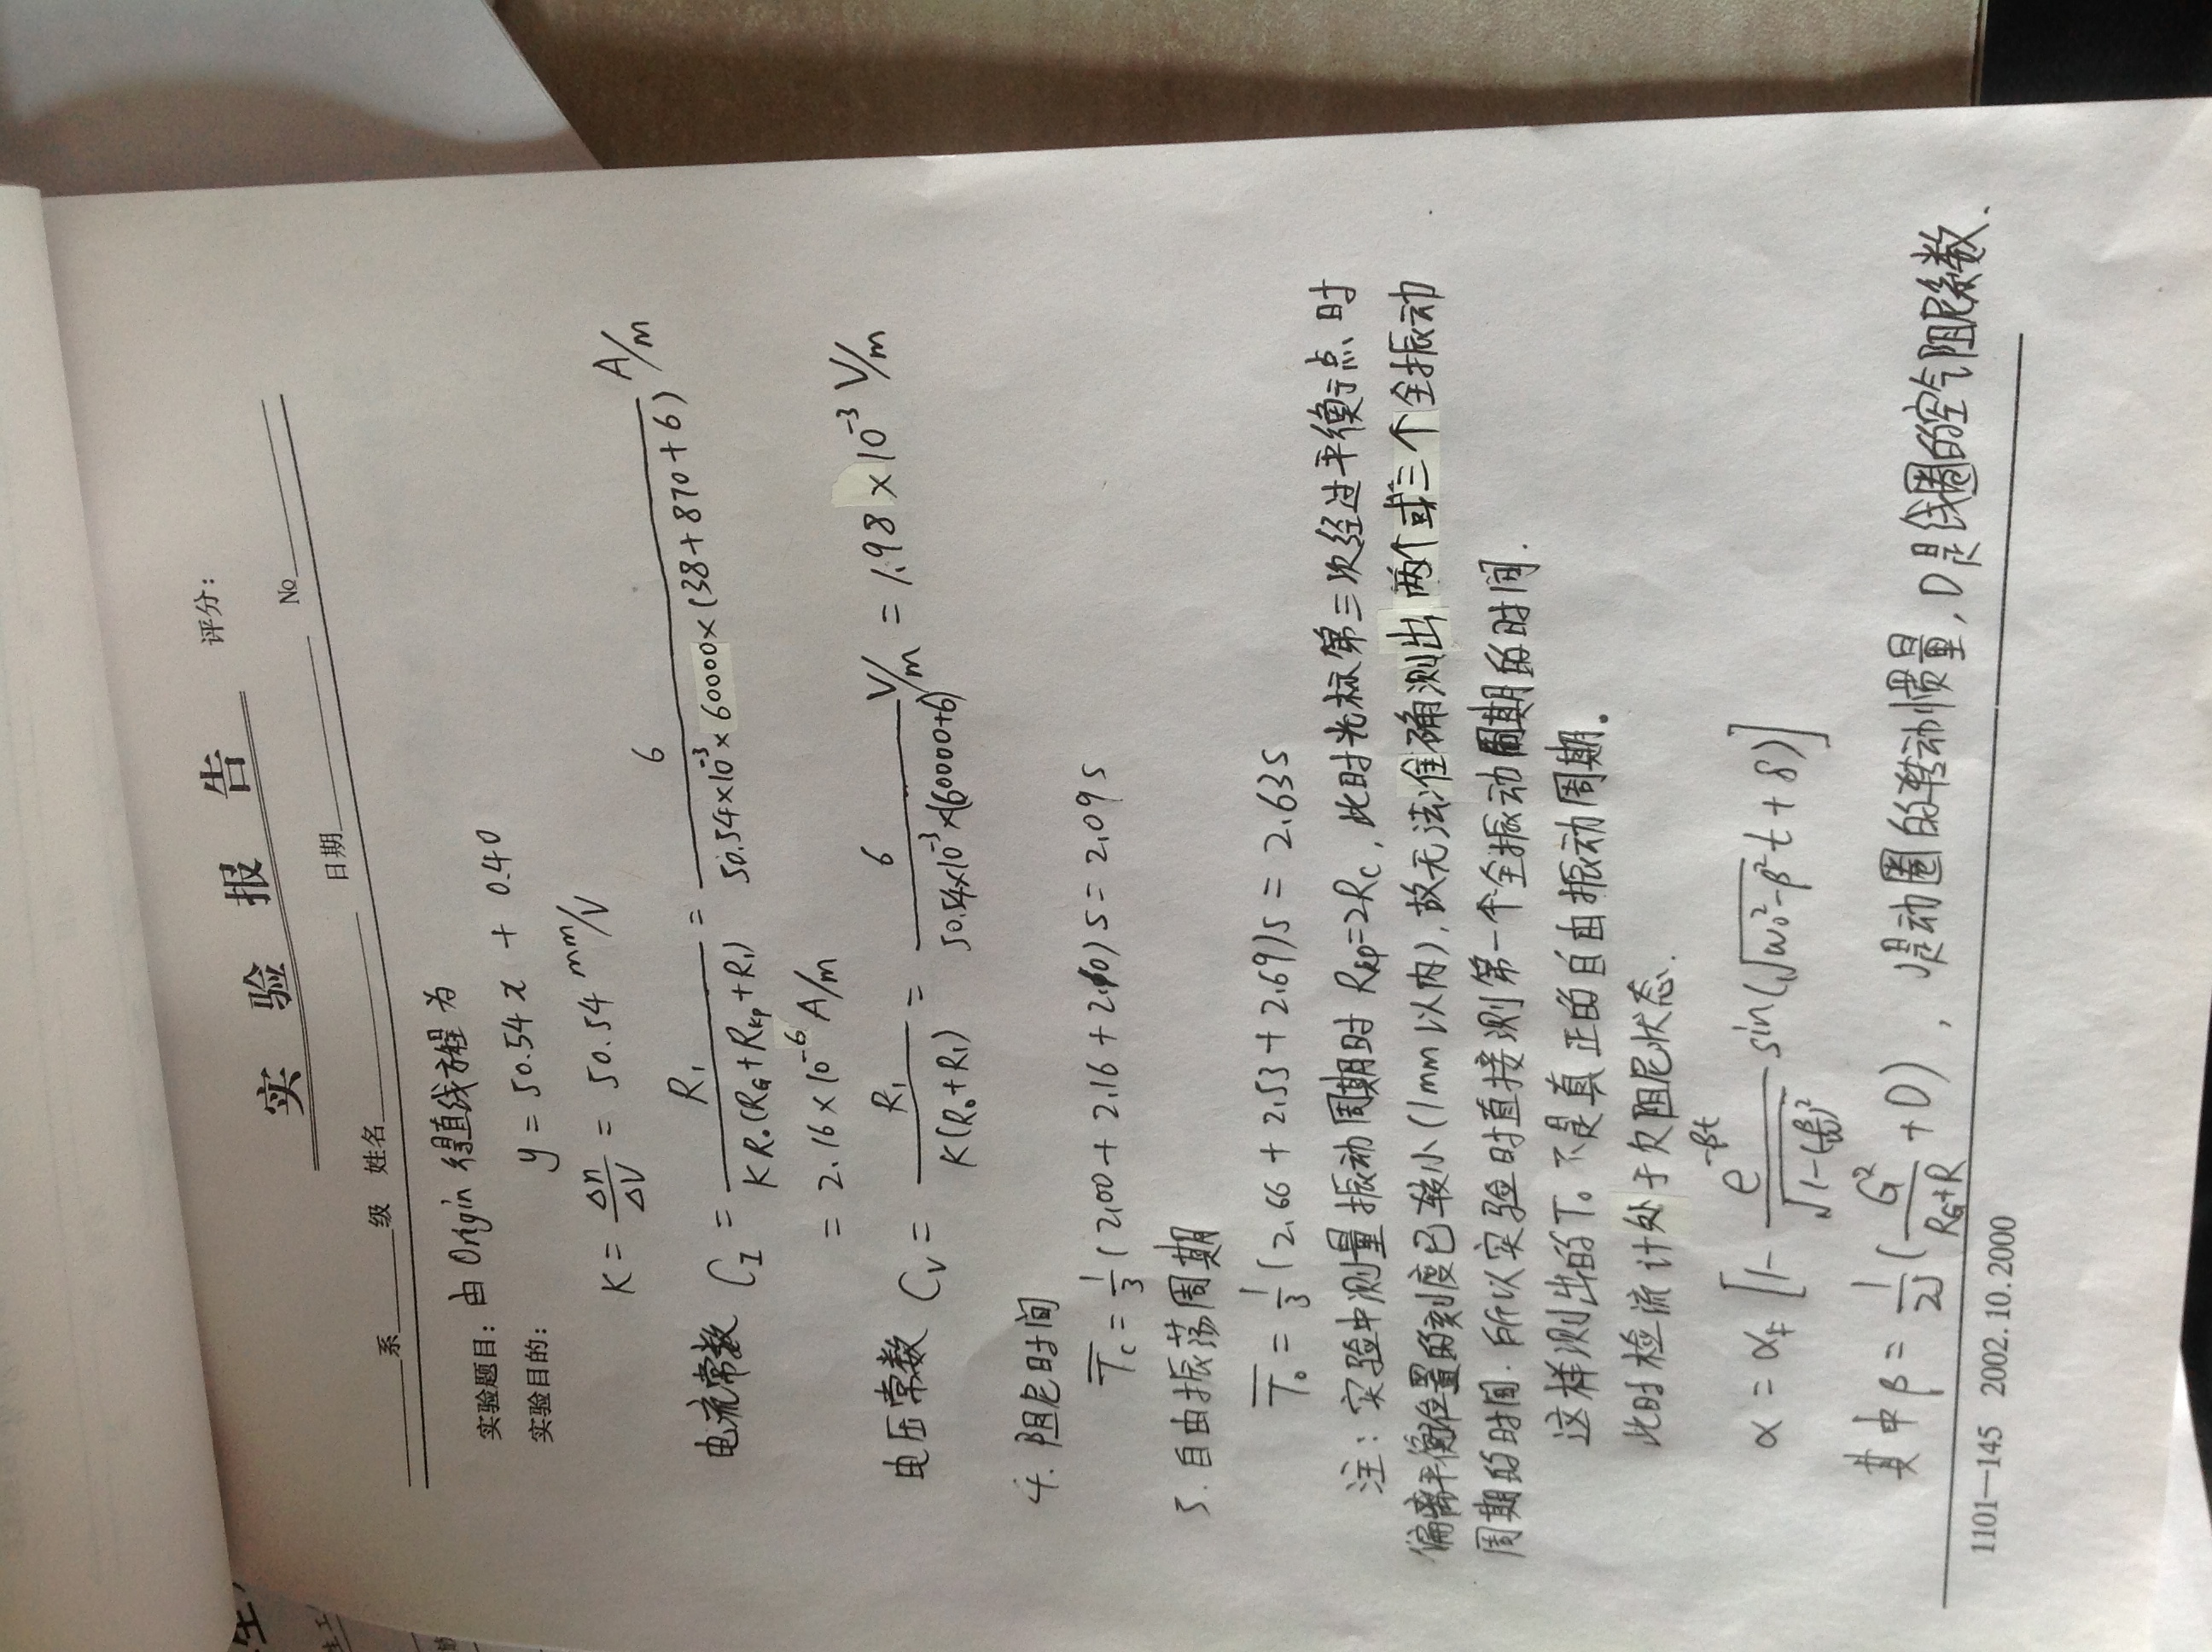 实 验 报 告
评分：
______系______级 姓名____________ 日期____________ №____________
实验题目：由 Origin 得直线方程为
实验目的： y = 50.54 x + 0.40
K = Δn/ΔV = 50.54 mm/V
电流常数 C_I = R₁/(K R₀(R_G+R_kp+R₁)) = 6/(50.54×10⁻³×60000×(38+870+6)) A/m
= 2.16×10⁻⁶ A/m
电压常数 C_V = R₁/(K(R₀+R₁)) = 6/(50.54×10⁻³×(60000+6)) V/m = 1.98×10⁻³ V/m
4. 阻尼时间
T̄_c = 1/3 (2.00 + 2.16 + 2.10) s = 2.09 s
5. 自由振荡周期
T̄₀ = 1/3 (2.66 + 2.53 + 2.69) s = 2.63 s
注：实验中测量振动周期时 R_kp=2R_c，此时光标第三次经过平衡点时
偏离平衡位置的刻度已较小（1mm以内），故无法准确测出两个或三个全振动
周期的时间．所以实验时直接测第一个全振动周期的时间．
这样测出的T₀不是真正的自由振动周期。
此时检流计处于欠阻尼状态．
α = α_F [1 - e^(-βt)/√(1-(β/ω₀)²) sin(√(ω₀²-β²) t + δ)]
其中 β = 1/2J (G²/(R_G+R) + D) ， J是动圈的转动惯量，D是线圈的空气阻尼系数．
1101—145 2002.10.2000